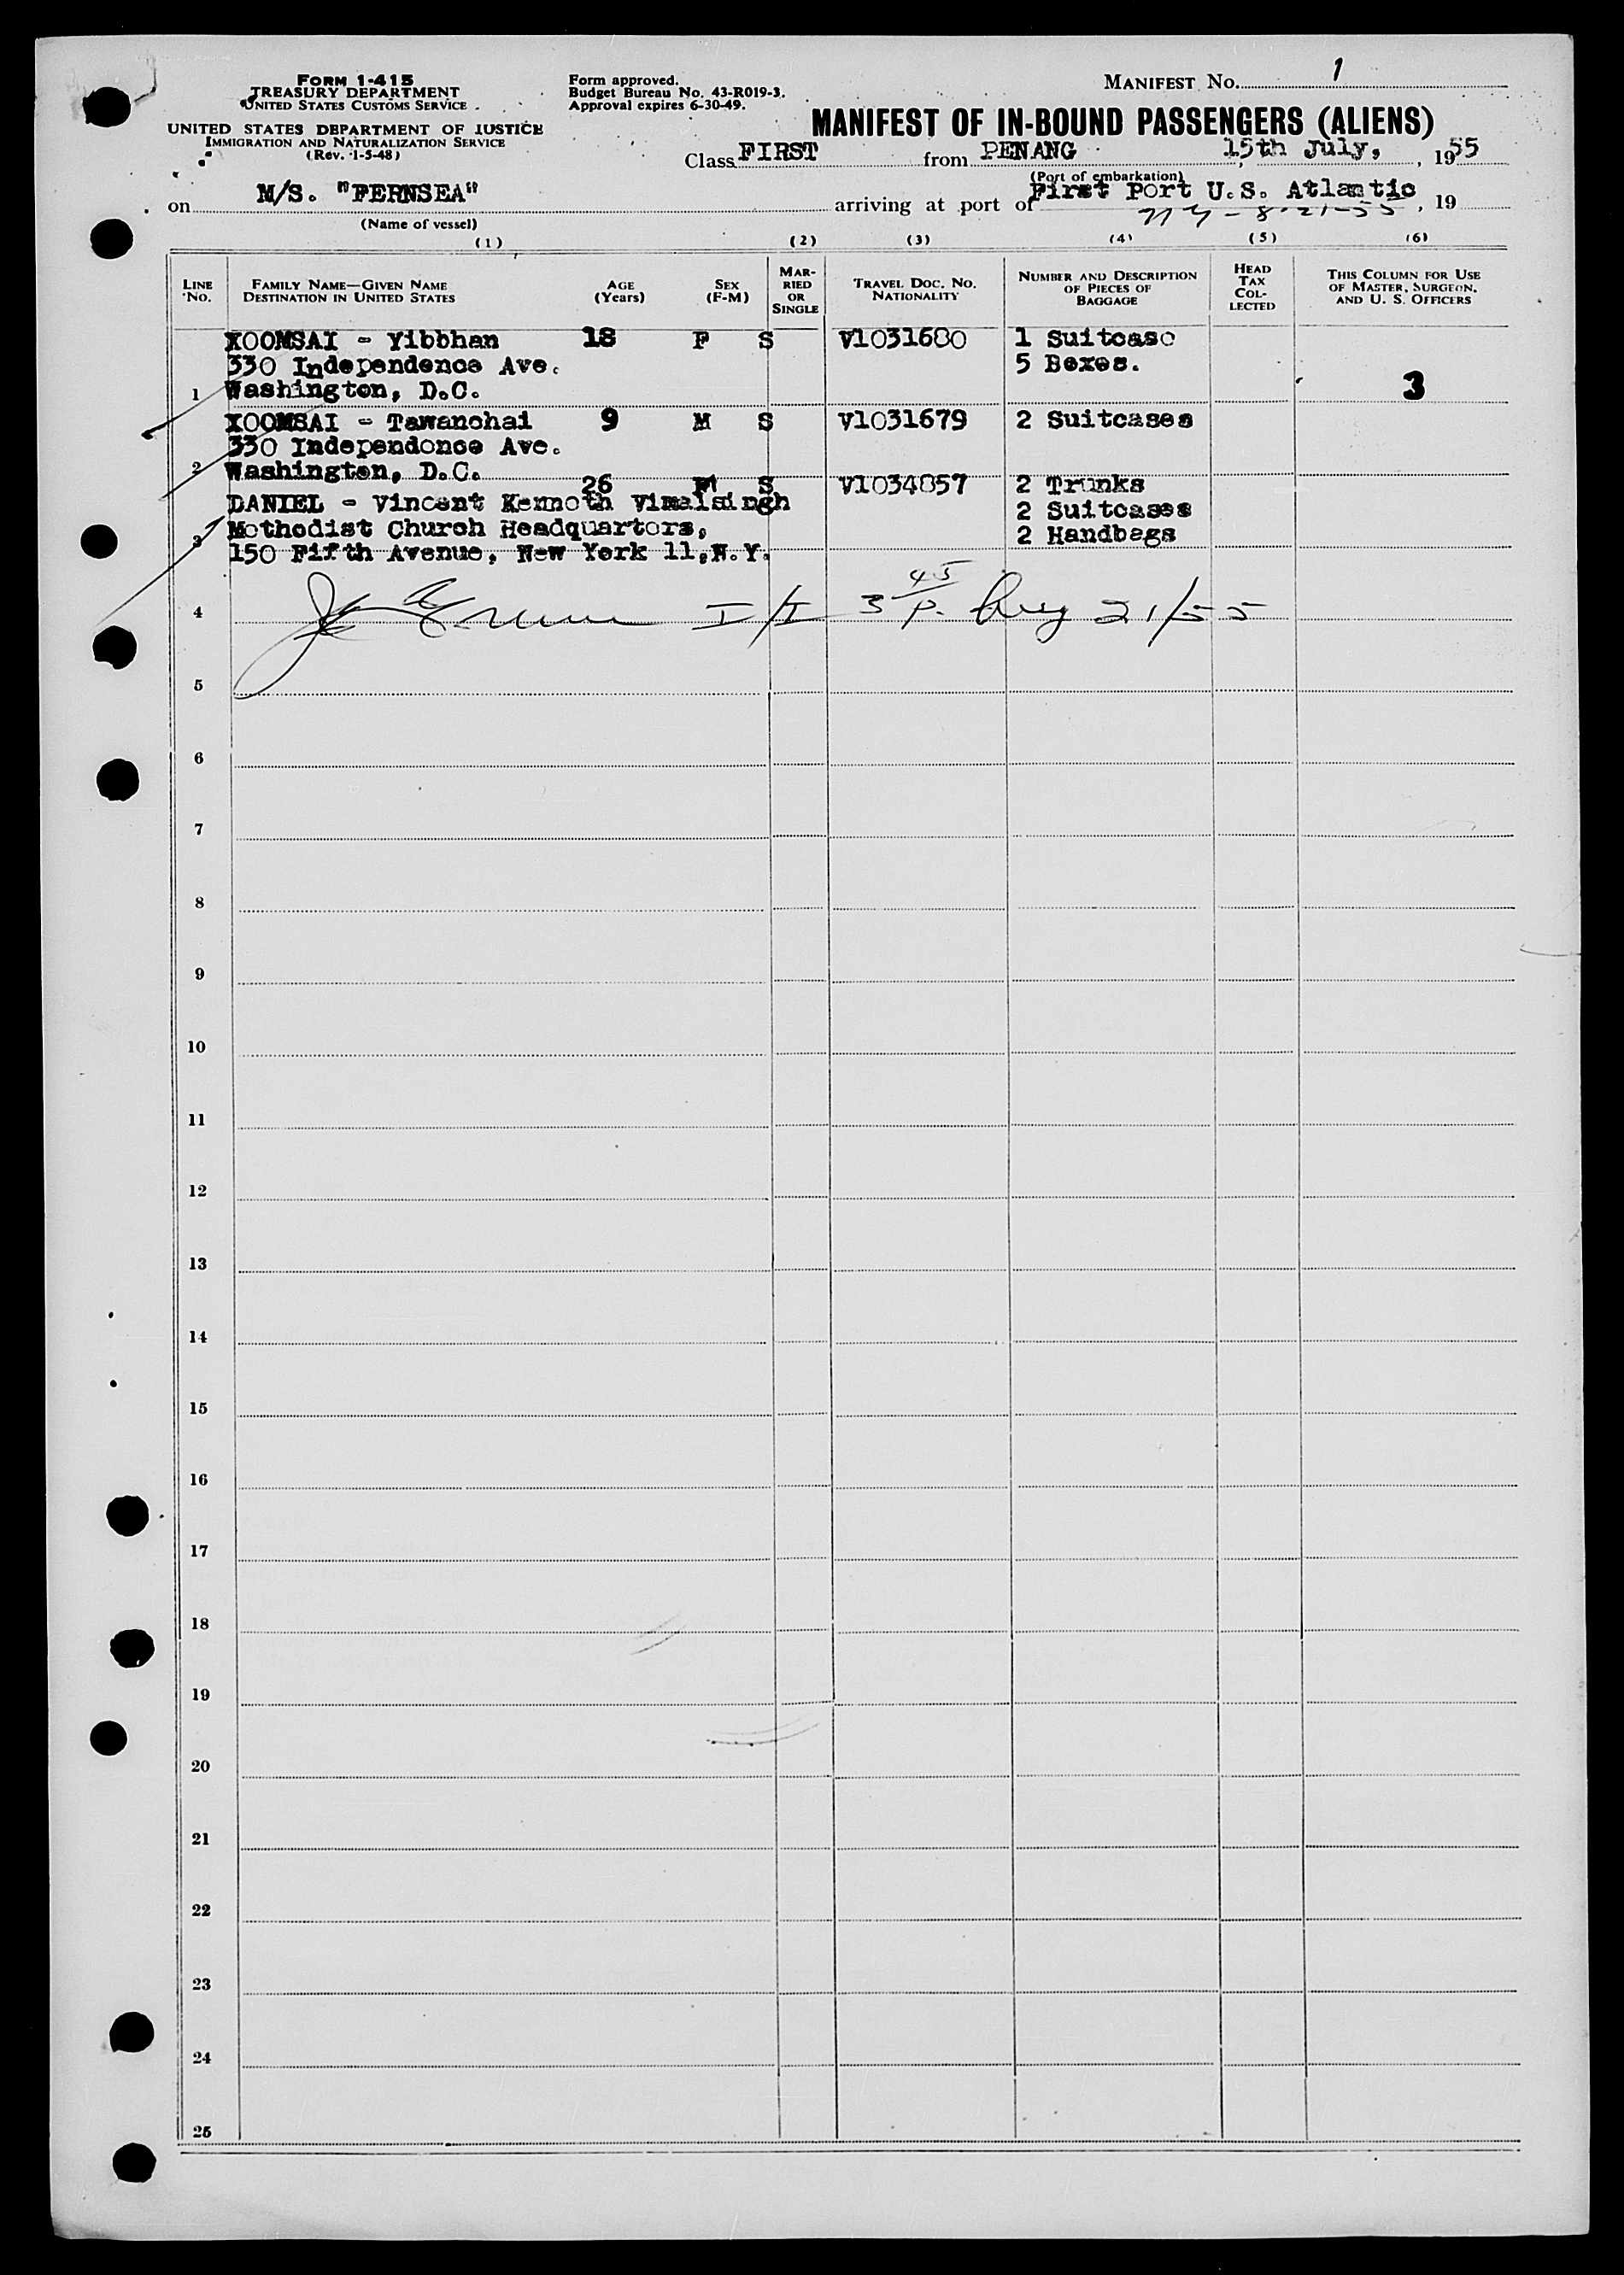 FORM I-415
TREASURY DEPARTMENT
UNITED STATES CUSTOMS SERVICE
UNITED STATES DEPARTMENT OF JUSTICE
IMMIGRATION AND NATURALIZATION SERVICE
(Rev. 1-5-48)
Form approved.
Budget Bureau No. 43-R019-3.
Approval expires 6-30-49.
MANIFEST NO. 1
MANIFEST OF IN-BOUND PASSENGERS (ALIENS)
Class FIRST from PENANG 15th July, , 1955
(Port of embarkation)
on M/S. "FERNSEA" arriving at port of First Port U.S. Atlantic , 19
(Name of vessel)
NY - 8-21-55
(1) (2) (3) (4) (5) (6)
LINE NO. FAMILY NAME—GIVEN NAME DESTINATION IN UNITED STATES AGE (Years) SEX (F-M) MARRIED OR SINGLE TRAVEL DOC. NO. NATIONALITY NUMBER AND DESCRIPTION OF PIECES OF BAGGAGE HEAD TAX COLLECTED THIS COLUMN FOR USE OF MASTER, SURGEON, AND U. S. OFFICERS
XOOMSAI - Yibbhan 18 F S V1031680 1 Suitcase
330 Independence Ave. 5 Boxes.
1 Washington, D.C. 3
XOOMSAI - Tawanchai 9 M S V1031679 2 Suitcases
330 Independence Ave.
2 Washington, D.C.
26 M S V1034857 2 Trunks
DANIEL - Vincent Kenneth Vimalsingh 2 Suitcases
3 Methodist Church Headquarters, 2 Handbags
150 Fifth Avenue, New York 11, N.Y.
4 I/I 3 45/P. Aug 21/55
5
6
7
8
9
10
11
12
13
14
15
16
17
18
19
20
21
22
23
24
25